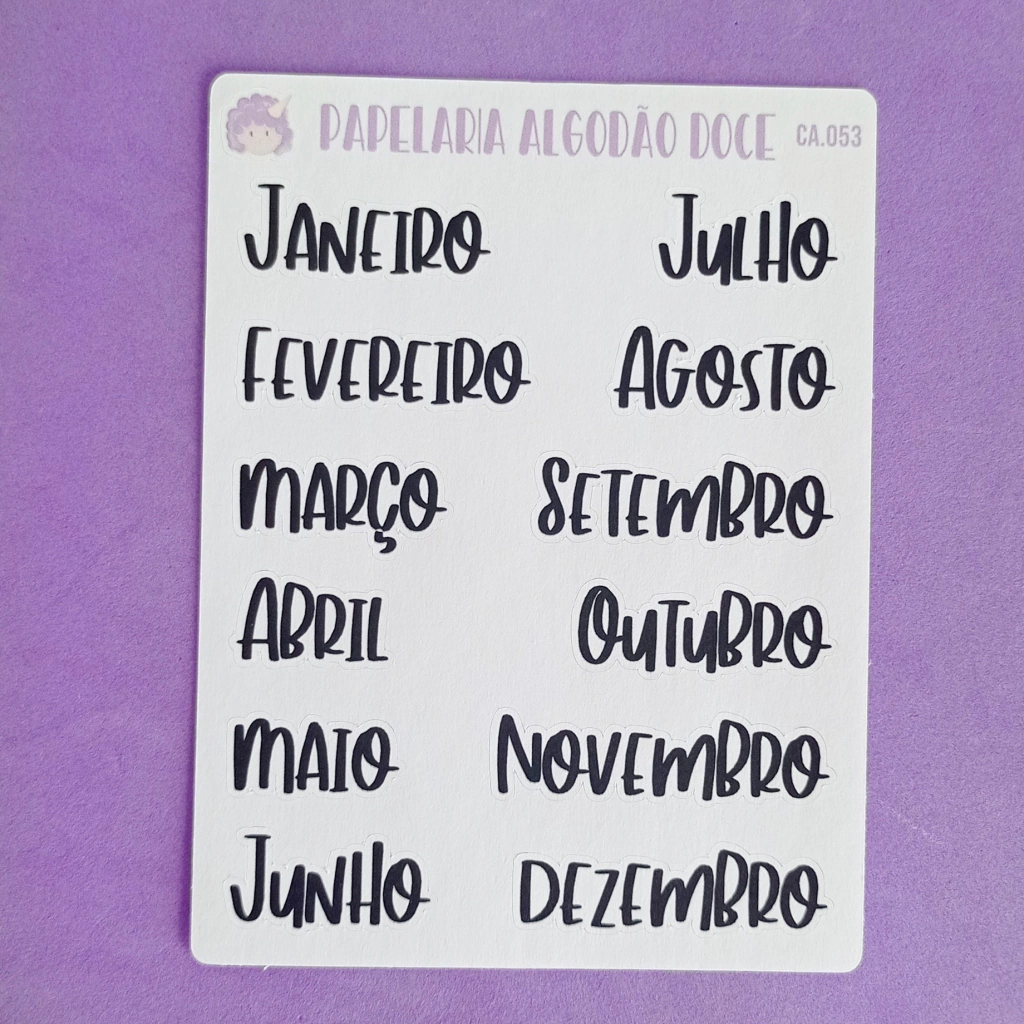 PAPELARIA ALGODÃO DOCE CA.053
JANEIRO
FEVEREIRO
MARÇO
ABRIL
MAIO
JUNHO
JULHO
AGOSTO
SETEMBRO
OUTUBRO
NOVEMBRO
DEZEMBRO